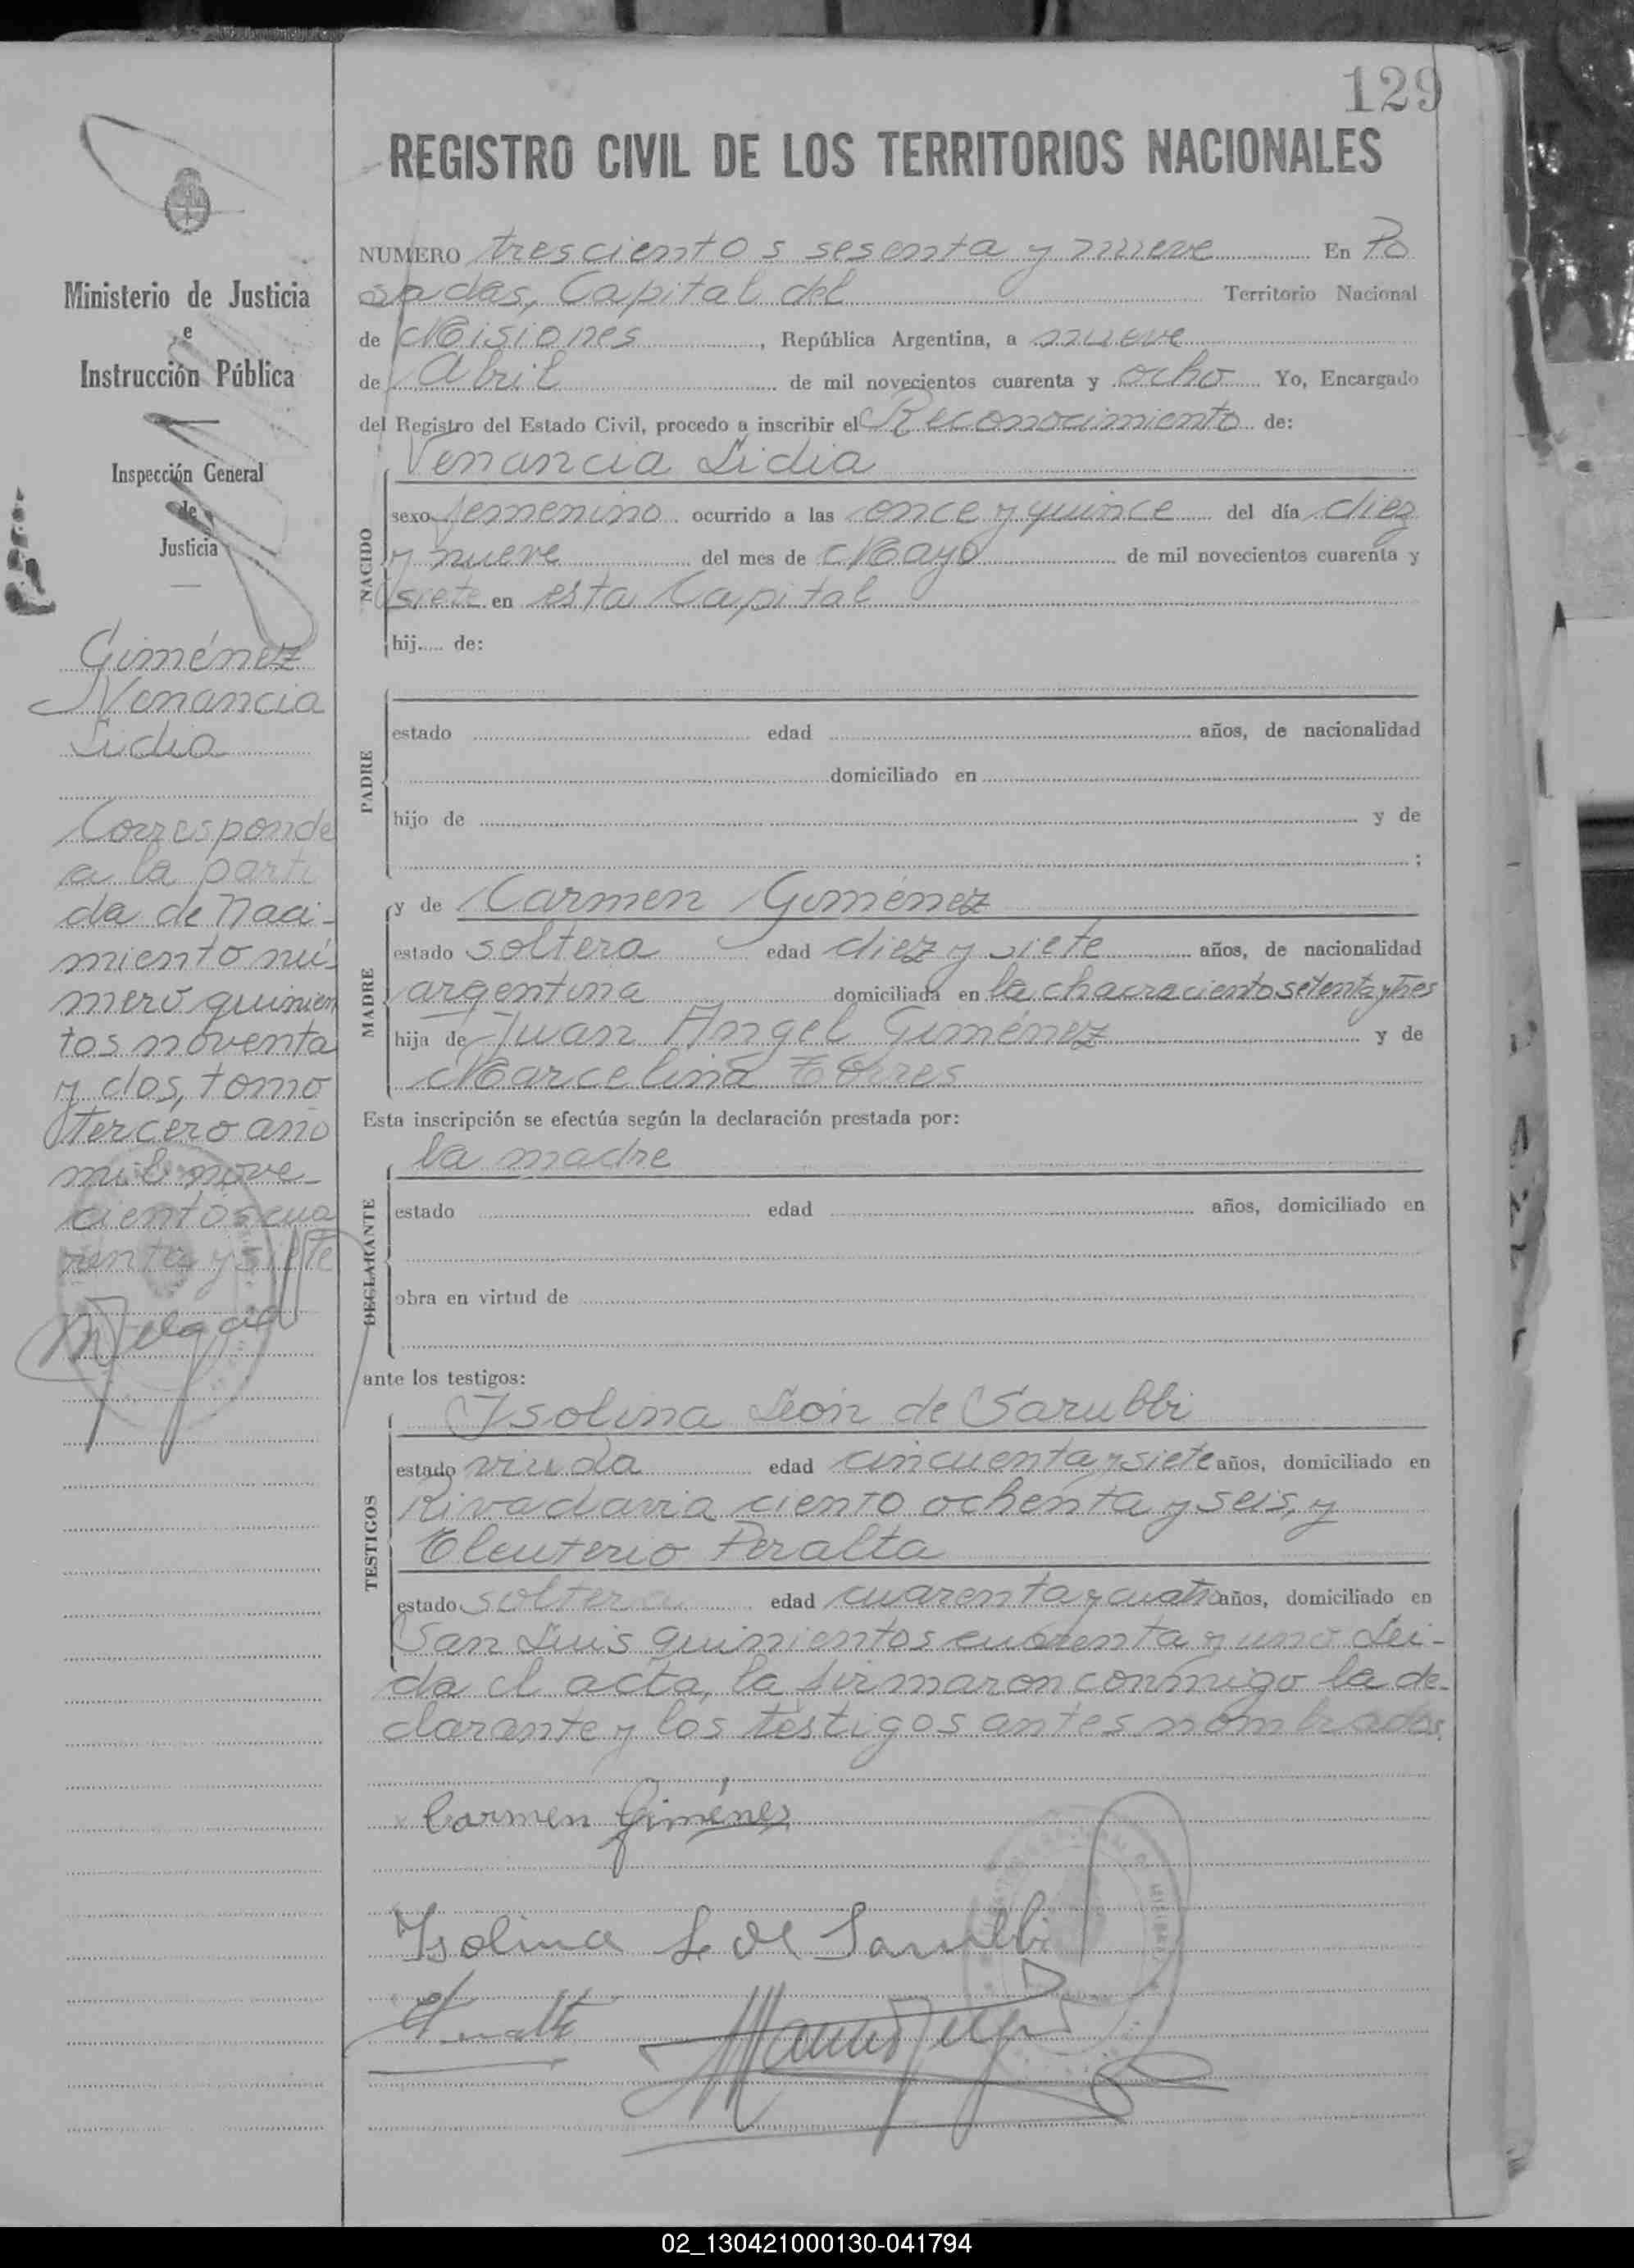 129
REGISTRO CIVIL DE LOS TERRITORIOS NACIONALES
Ministerio de Justicia
e
Instrucción Pública
Inspección General
de
Justicia
Giménez
Venancia
Lidia
Corresponde
a la parti
da de Naci-
miento nú-
mero quinien
tos noventa
y dos, tomo
tercero año
mil nove-
cientos cua
renta y siete
NUMERO trescientos sesenta y nueve En Po
sadas, Capital del Territorio Nacional
de Misiones, República Argentina, a nueve
de Abril de mil novecientos cuarenta y ocho Yo, Encargado
del Registro del Estado Civil, procedo a inscribir el Reconocimiento de:
NACIDO
Venancia Lidia
sexo femenino ocurrido a las once y quince del día diez
y nueve del mes de Mayo de mil novecientos cuarenta y
siete en esta Capital
hij..... de:
PADRE
estado edad años, de nacionalidad
domiciliado en
hijo de y de
;
MADRE
y de Carmen Giménez
estado soltera edad diez y siete años, de nacionalidad
argentina domiciliada en la chacra ciento setenta y tres
hija de Juan Angel Giménez y de
Marcelina Torres
Esta inscripción se efectúa según la declaración prestada por:
DECLARANTE
la madre
estado edad años, domiciliado en
obra en virtud de
ante los testigos:
TESTIGOS
Isolina León de Sarubbi
estado viuda edad cincuenta y siete años, domiciliado en
Rivadavia ciento ochenta y seis, y
Eleuterio Peralta
estado soltero edad cuarenta y cuatro años, domiciliado en
San Luis quinientos cuarenta y uno Lei-
da el acta, la firmaron conmigo la de-
clarante y los testigos antes nombrados.
Carmen Giménes
Isolina L de Sarubbi
02_130421000130-041794